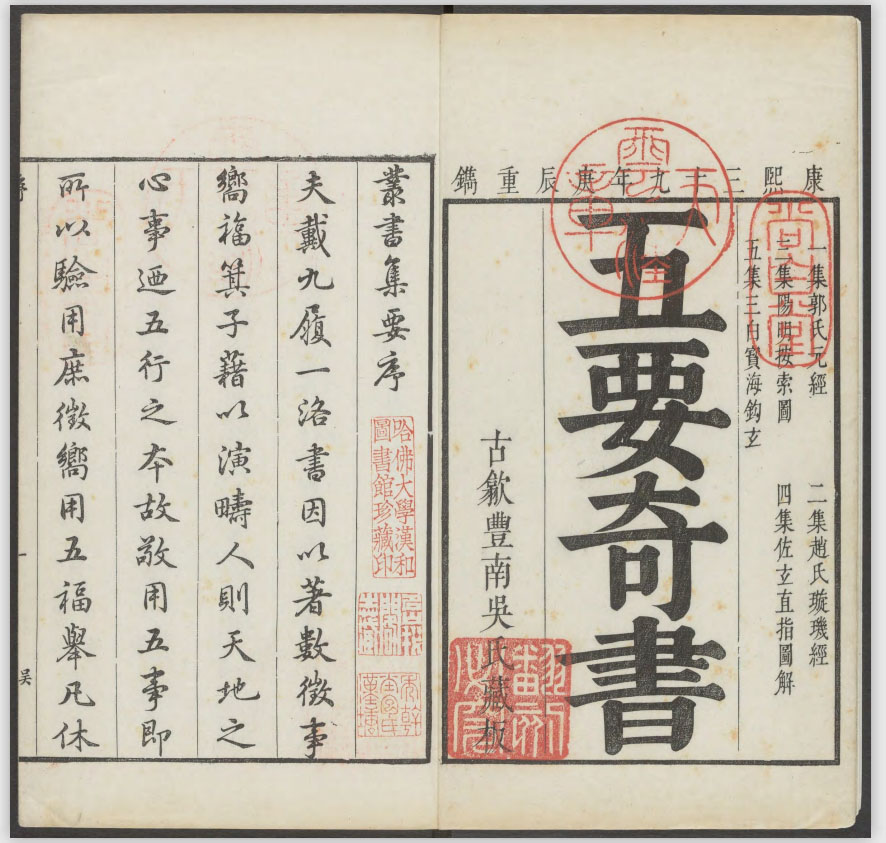 康熙三十九年庚辰重鐫
一集郭氏元經
二集趙氏璇璣經
三集陽明按索圖
四集佐玄直指圖解
五集三白寶海鈎玄
五要奇書
古歙豐南吳氏藏板
叢書集要序
哈佛大學漢和
圖書館珍藏印
夫戴九履一洛書因以著數徵事
嚮福箕子藉以演疇人則天地之
心事迺五行之本故敬用五事即
所以驗用庶徵嚮用五福舉凡休
序
一
吳